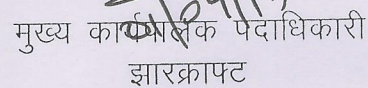 मुख्य कार्यपालक पदाधिकारी
झारक्राफ्ट